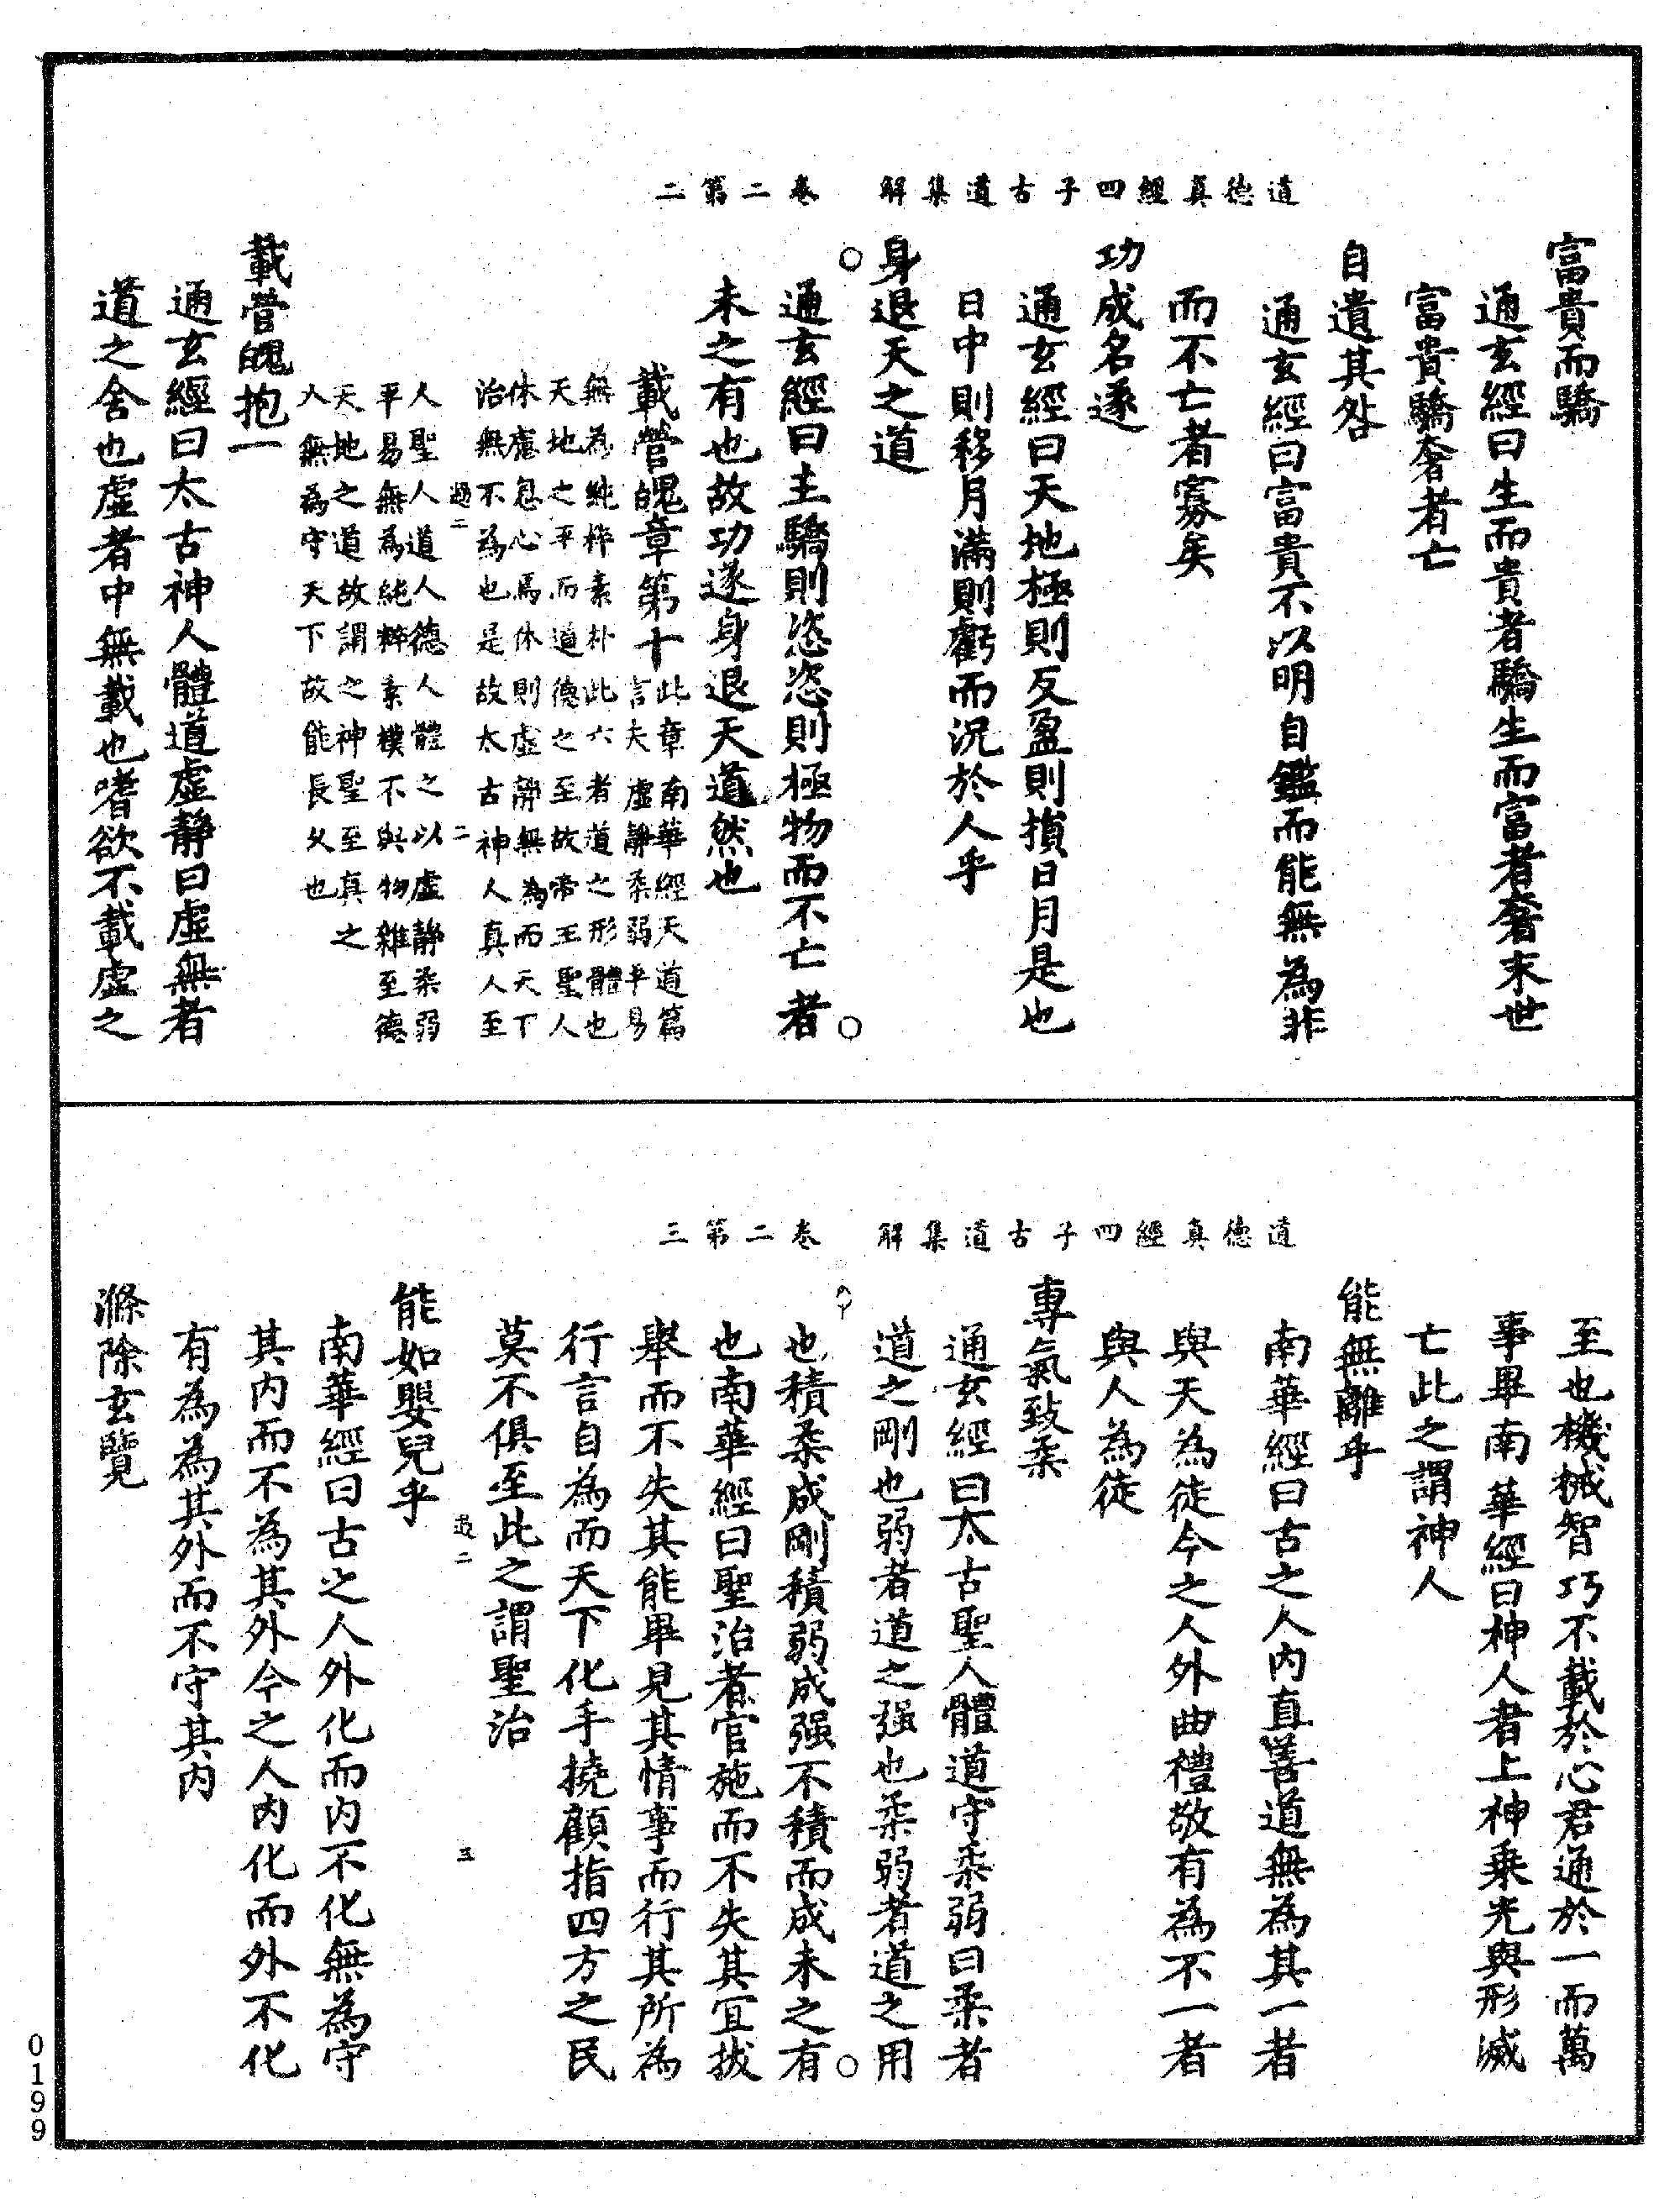 道德真經四子古道集解　卷二第二
富貴而驕
通玄經曰生而貴者驕生而富者奢末世
富貴驕奢者亡
自遺其咎
通玄經曰富貴不以明自鑑而能無為非
而不亡者寡矣
功成名遂
通玄經曰天地極則反盈則損日月是也
日中則移月滿則虧而況於人乎
身退天之道
通玄經曰主驕則恣恣則極物而不亡者
未之有也故功遂身退天道然也
載營魄章第十
此章南華經天道篇
言夫虛靜柔弱平易
無為純粹素朴此六者道之形體也
天地之平而道德之至故帝王聖人
休應息心焉休則虛靜無為而天下
治無不為也是故太古神人真人至
過二
二
人聖人道人德人體之以虛靜柔弱
平易無為純粹素樸不與物雜至德
天地之道故謂之神聖至真之
人無為守天下故能長久也
載營魄抱一
通玄經曰太古神人體道虛靜曰虛無者
道之舍也虛者中無載也嗜欲不載虛之
道德真經四子古道集解　卷二第三
至也機械智巧不載於心君通於一而萬
事畢南華經曰神人者上神乘光與形滅
亡此之謂神人
能無離乎
南華經曰古之人內直善道無為其一者
與天為徒今之人外曲禮敬有為不一者
與人為徒
專氣致柔
通玄經曰太古聖人體道守柔弱曰柔者
道之剛也弱者道之强也柔弱者道之用
也積柔成剛積弱成强不積而成未之有
也南華經曰聖治者官施而不失其宜拔
舉而不失其能畢見其情事而行其所為
行言自為而天下化手撓顧指四方之民
莫不俱至此之謂聖治
過二
三
能如嬰兒乎
南華經曰古之人外化而內不化無為守
其內而不為其外今之人內化而外不化
有為為其外而不守其內
滌除玄覽
0199